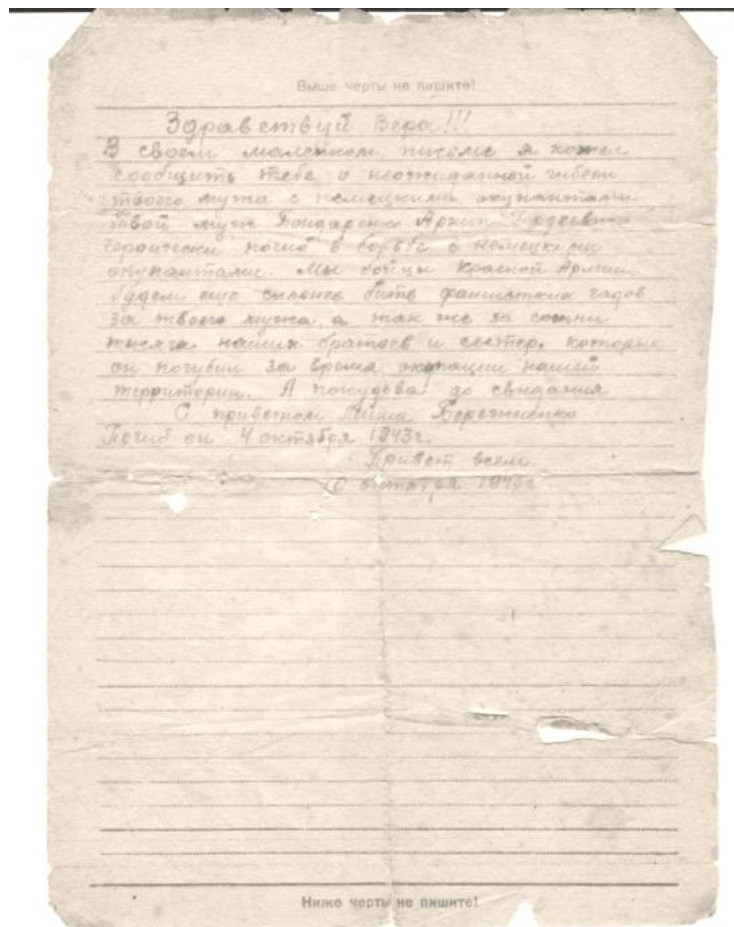 Выше черты не пишите!
Здравствуй Вера!!!
В своем маленьком письме я хочем
сообщить тебе о неожиданной гибели
твоего мужа с немецкими окупантами
твой муж Бондаренко Архип Гордеевич
героически погиб в борьбе с немецкими
окупантами. Мы бойцы Красной Армии
будем еще сильнее бить фашистких гадов
за твоего мужа, а так же за сотни
тысяга наших братьев и сестер, которые
он погубил за время окупации нашей
территории. А покудова до свидания
С приветом Миша Бережненко
Погиб он 4 октября 1943г.
Привет всем.
октября 1943г
Ниже черты не пишите!